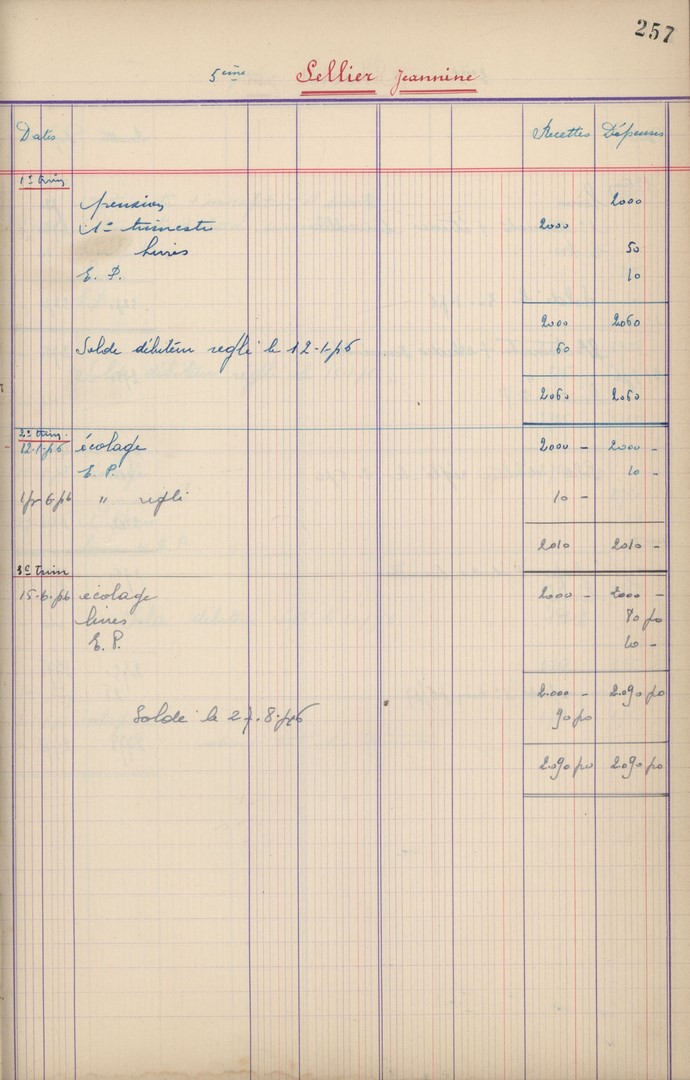 257
5ème Sellier Jeannine
Dates Recettes Dépenses
1er trim
pension 2000
1er trimestre 2000
livres 50
E. P. 10
2000 2060
Solde débiteur réglé le 12-1-56 60
2060 2060
2e trim.
12-1-56 écolage 2000 - 2000 -
E. P. 10 -
6-56 " réglé 10 -
2010 2010 -
3e trim
15-6-56 écolage 2000 - 2000 -
livres 80 50
E. P. 10 -
2.000 - 2.090 50
Solde le 27.8.56 90 50
2090 50 2090 50